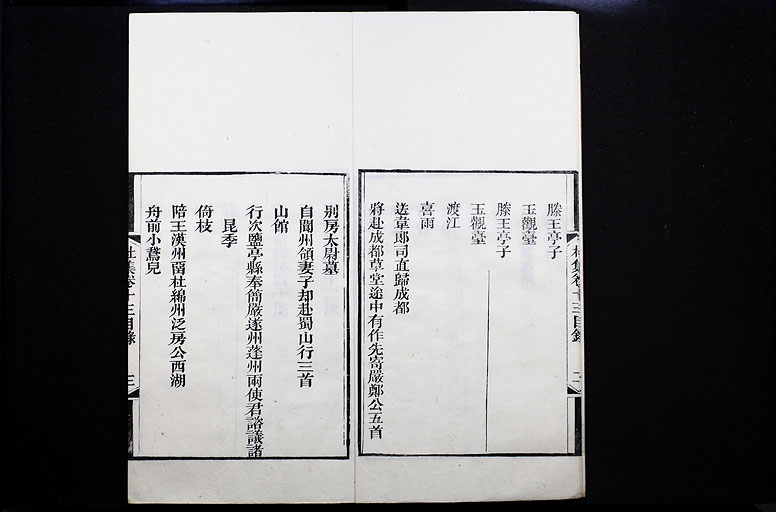 滕王亭子
玉觀臺
滕王亭子
玉觀臺
渡江
喜雨
送韋郎司直歸成都
將赴成都草堂途中有作先寄嚴鄭公五首
別房太尉墓
自閬州領妻子却赴蜀山行三首
山館
行次鹽亭縣奉簡嚴遂州蓬州兩使君諮議諸
昆季
倚杖
陪王漢州留杜綿州泛房公西湖
舟前小鵞兒
杜集卷十三目錄
二
杜集卷十三目錄
三